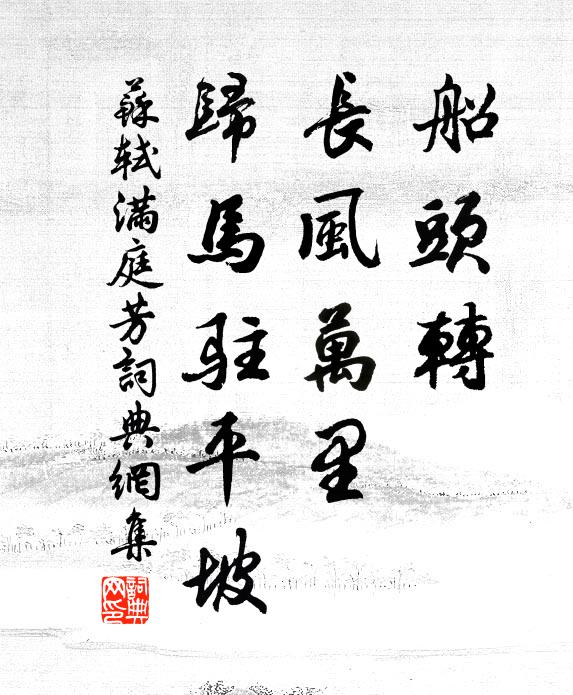 船頭轉
長風萬里
歸馬駐平坡
蘇軾滿庭芳詞典網集
詞典网印